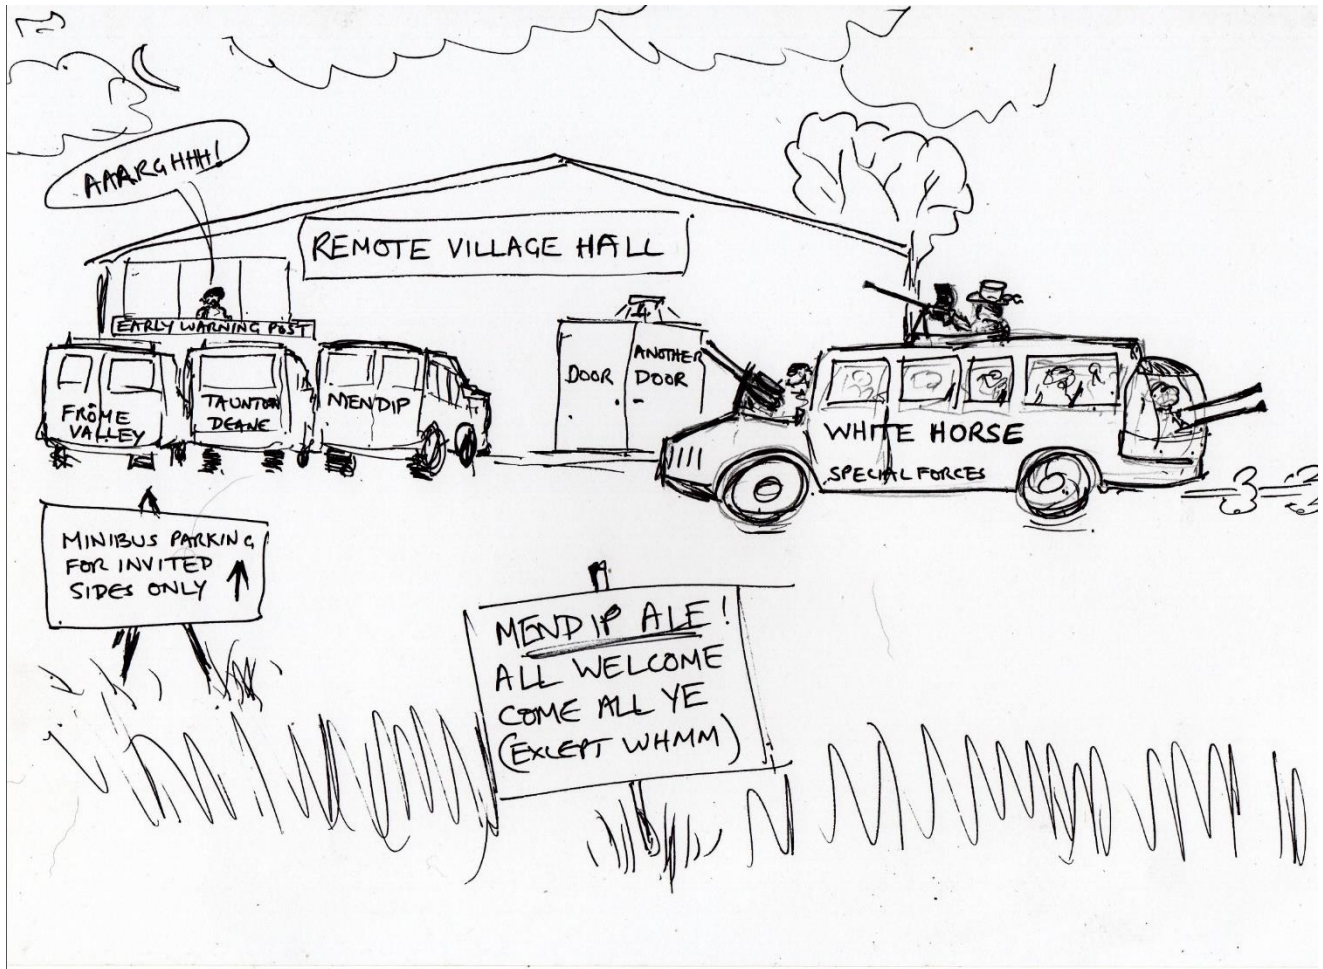 AAARGHHH!
REMOTE VILLAGE HALL
EARLY WARNING POST
FROME
VALLEY
TAUNTON
DEANE
MENDIP
DOOR
ANOTHER
DOOR
WHITE HORSE
SPECIAL FORCES
MINIBUS PARKING
FOR INVITED
SIDES ONLY
MENDIP ALE!
ALL WELCOME
COME ALL YE
(EXCEPT WHMM)